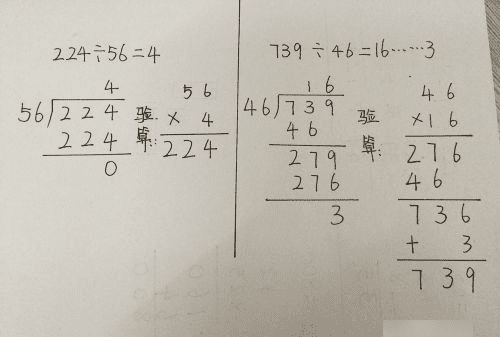 224÷56=4
4
56)224
224
0
验算:
56
× 4
224
739÷46=16……3
16
46)739
46
279
276
3
验算:
46
×16
276
46
736
+ 3
739